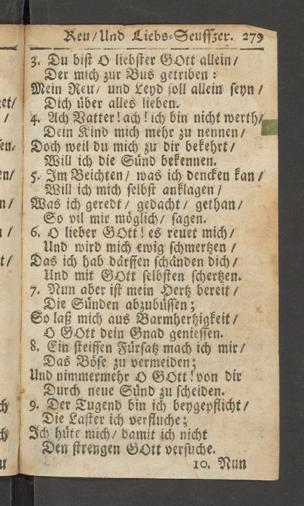 Reu/ Und Liebs-Seuffzer. 279
3. Du bist O liebster GOtt allein/
Der mich zur Bus getriben:
Mein Reu/ und Leyd soll allein seyn/
Dich über alles lieben.
4. Ach Vatter! ach! ich bin nicht werth/
Dein Kind mich mehr zu nennen/
Doch weil du mich zu dir bekehrt/
Will ich die Sünd bekennen.
5. Im Beichten/ was ich dencken kan/
Will ich mich selbst anklagen/
Was ich geredt/ gedacht/ gethan/
So vil mir möglich/ sagen.
6. O lieber GOtt! es reuet mich/
Und wird mich ewig schmertzen/
Das ich hab därffen schänden dich/
Und mit GOtt selbsten schertzen.
7. Nun aber ist mein Hertz bereit/
Die Sünden abzubüssen;
So laß mich aus Barmhertzigkeit/
O GOtt dein Gnad geniessen.
8. Ein steiffen Fürsatz mach ich mir/
Das Böse zu vermeiden;
Und nimmermehr O GOtt! von dir
Durch neue Sünd zu scheiden.
9. Der Tugend bin ich beygepflicht/
Die Laster ich verfluche;
Ich hüte mich/ damit ich nicht
Den strengen GOtt versuche.
10. Nun